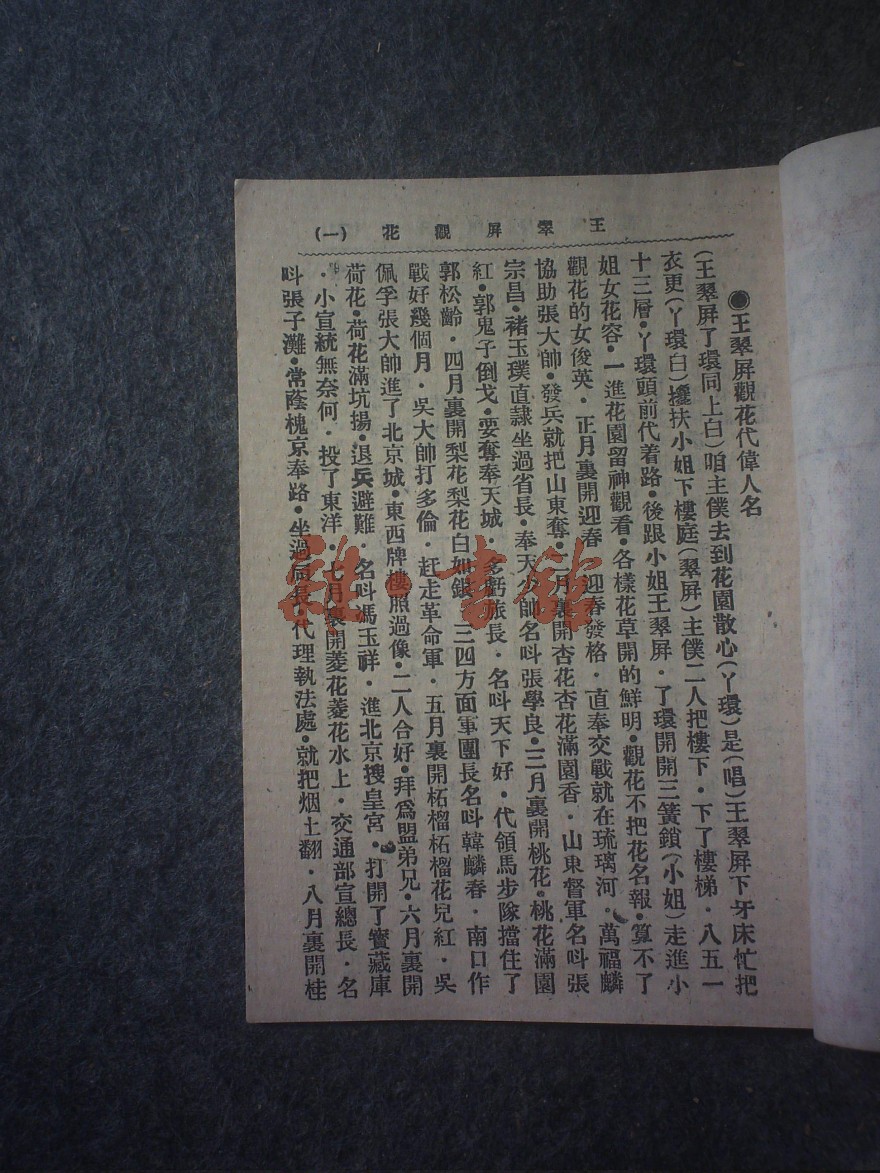 王翠屏觀花 (一)
●王翠屏觀花代偉人名
(王翠屏了環同上白)咱主僕去到花園散心(丫環)是(唱)王翠屏下牙床忙把
衣更(丫環白)攙扶小姐下樓庭(翠屏)主僕二人把樓下·下了樓梯·八五一
十三層·丫環頭前代着路·後跟小姐王翠屏·了環開開三簧鎖(小姐)走進小
姐女花容·一進花園留神觀看·各樣花草開的鮮明·觀花不把花名報·算不了
觀花的女俊英·正月裏開迎春 迎春發格·直奉交戰就在琉璃河·萬福麟
協助張大帥·發兵就把山東奪·二月裏開杏花杏花滿園香·山東督軍名呌張
宗昌·褚玉璞直隷坐過省長·奉天少帥名呌張學良·三月裏開桃花·桃花滿園
紅·郭鬼子倒戈·要奪奉天城·多虧旅長·名呌天下好·代領馬步隊擋住了
郭松齡·四月裏開梨花梨花白如銀 三四方面軍團長名呌韓麟春·南口作
戰好幾個月·吳大帥打多倫·赶走革命軍·五月裏開柘榴柘榴花兒紅·吳
佩孚張大帥進了北京城·東西牌樓照過像·二人合好·拜爲盟弟兄·六月裏開
荷花·荷花滿坑揚·退兵避難·名呌馮玉祥·進北京搜皇宮·打開了寶藏庫
·小宣統無奈何·投了東洋·七月裏開菱花菱花水上·交通部宣總長·名
呌張子灘·常蔭槐京奉路·坐過局長·代理執法處·就把烟土翻·八月裏開桂
雜·書館